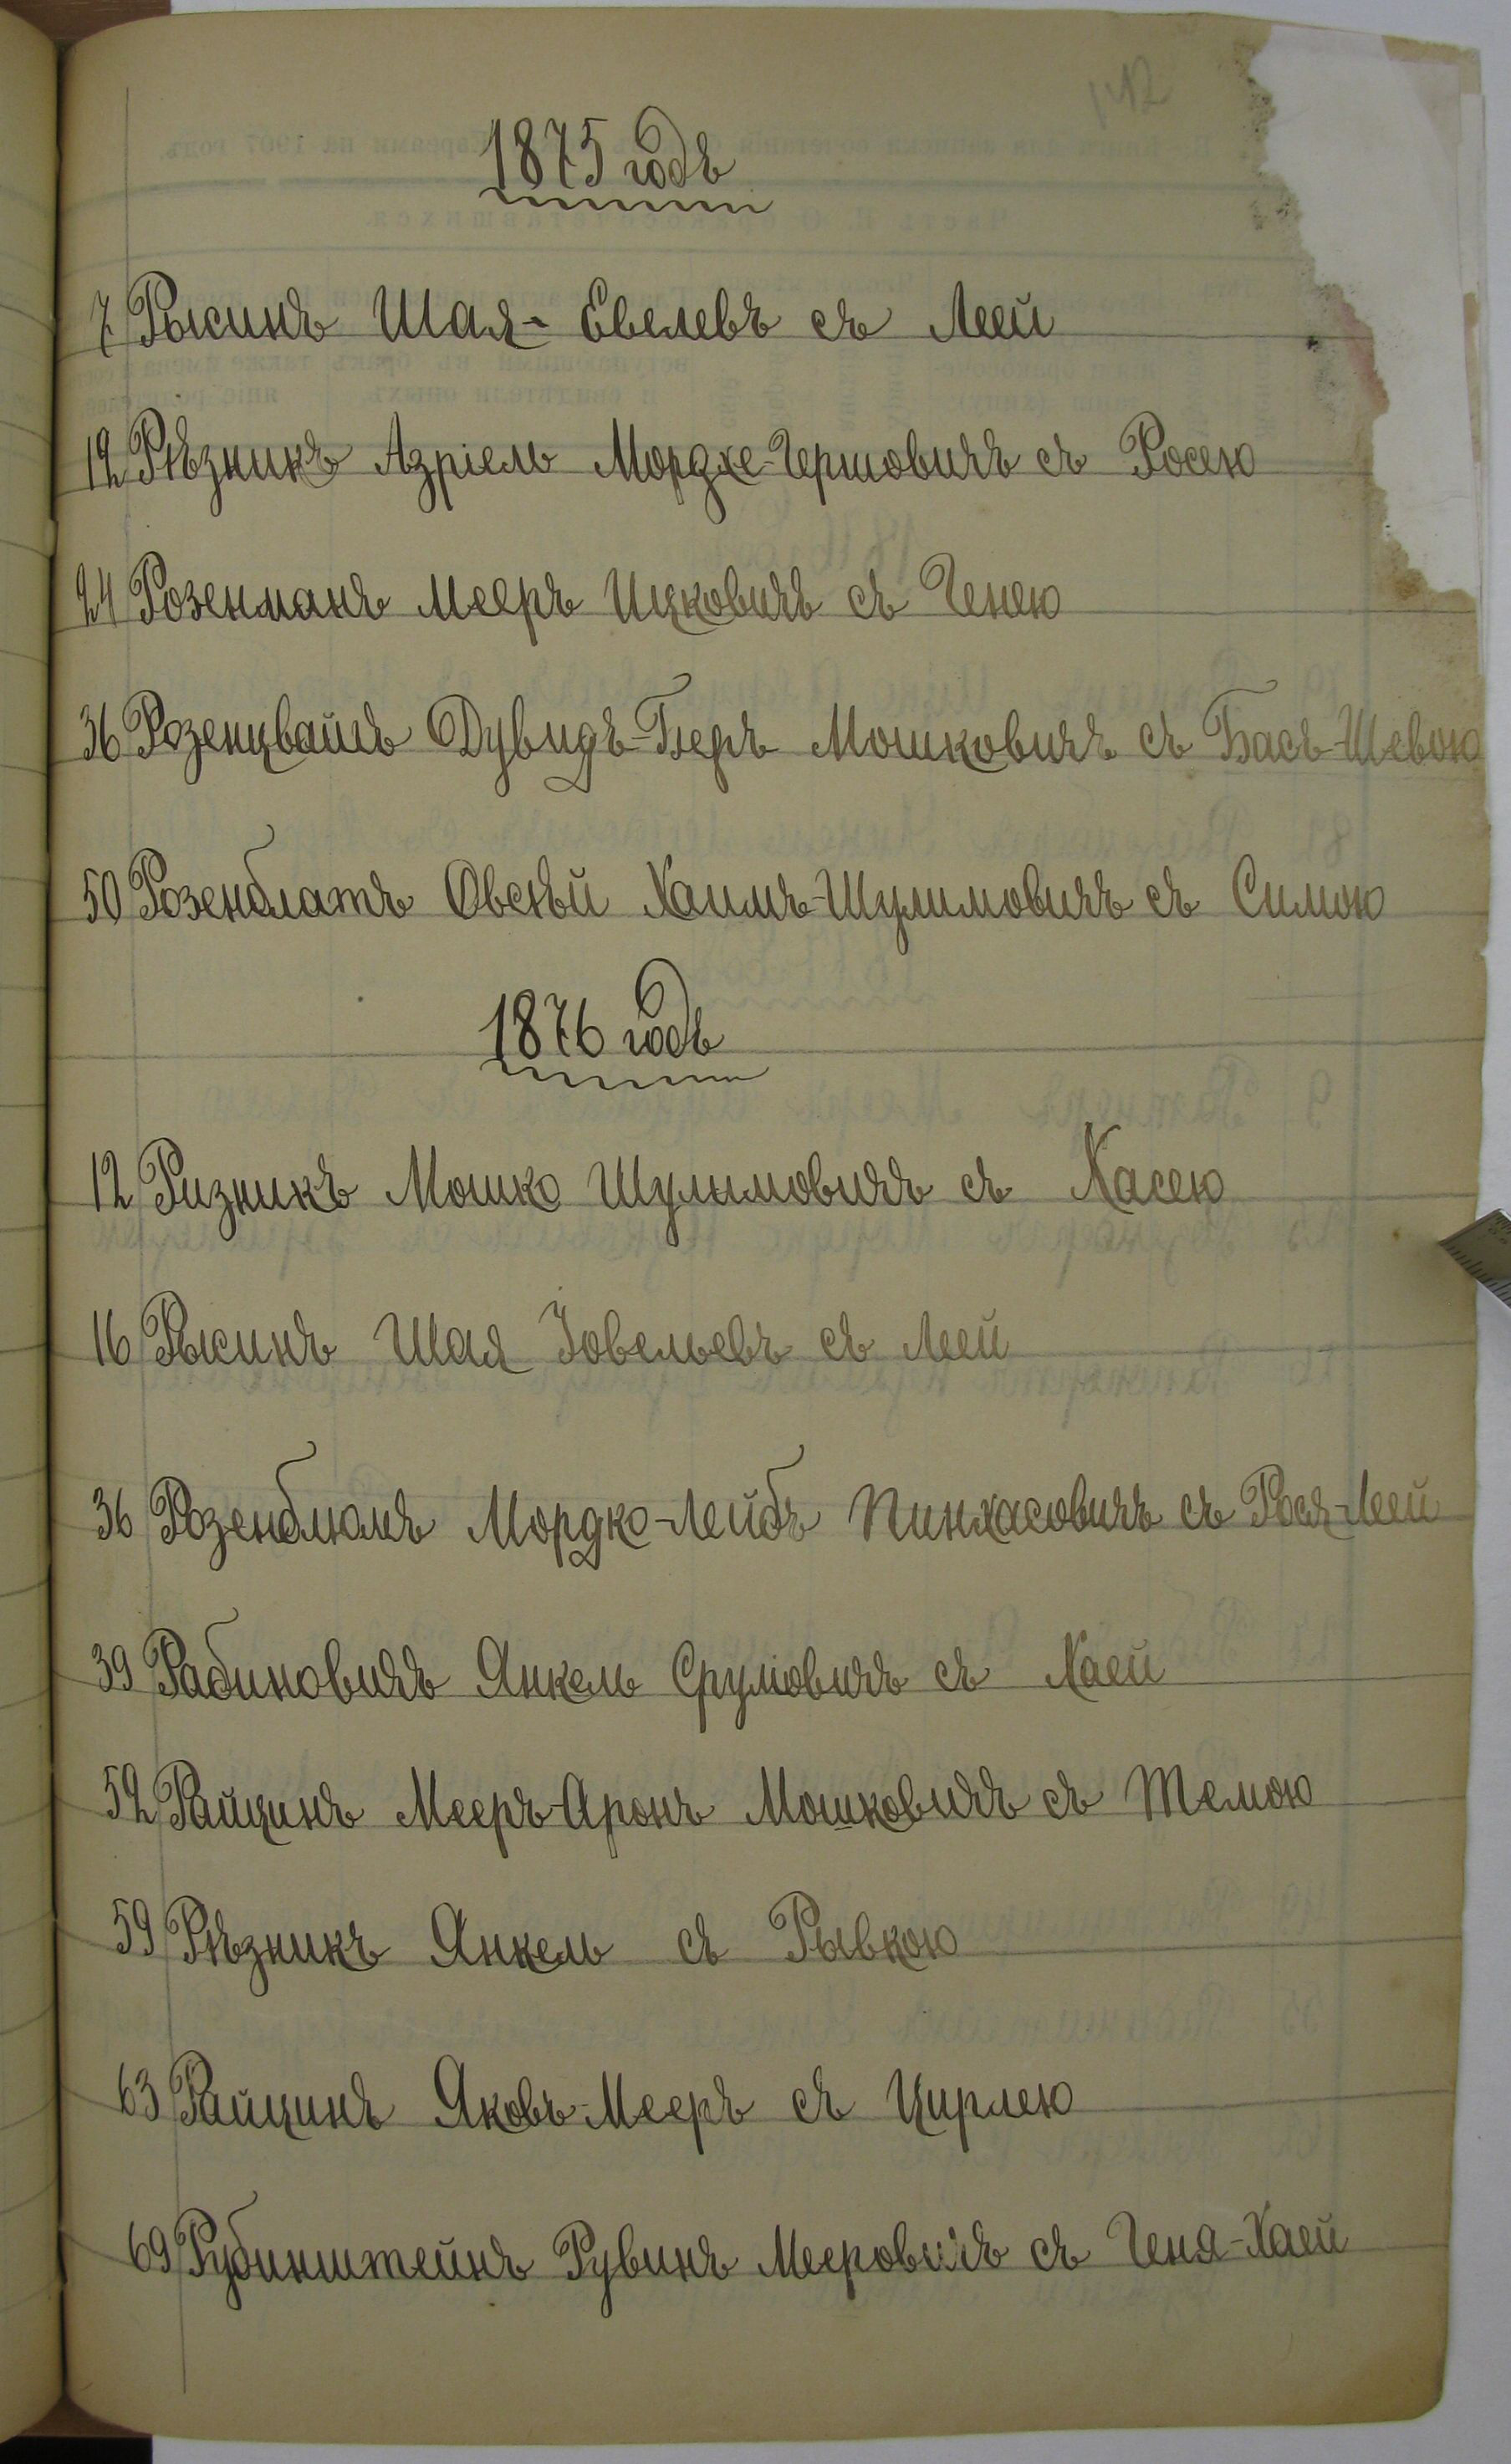 142
1875 годъ
7 Рысинъ Шая-Евелевъ съ Леей
12 Рѣзникъ Азріель Мордхе-Гершовичъ съ Росею
24 Розенманъ Мееръ Ицковичъ съ Генею
36 Розенцвайгъ Дувидъ-Беръ Мошковичъ съ Бася-Шевою
50 Розенблатъ Овсѣй Хаимъ-Шулимовичъ съ Симою
1876 годъ
12 Ризникъ Мошко Шулимовичъ съ Хасею
16 Рысинъ Шая Іовельевъ съ Леей
36 Розенблюмъ Мордко-Лейбъ Пинхасовичъ съ Рося-Леей
39 Рабиновичъ Янкель Срулiовичъ съ Хаей
52 Райцинъ Мееръ-Аронъ Мошковичъ съ Темою
59 Рѣзникъ Янкель съ Рывкою
63 Райцинъ Яковъ-Мееръ съ Цирлею
69 Рубинштейнъ Рувинъ Мееровичъ съ Геня-Хаей